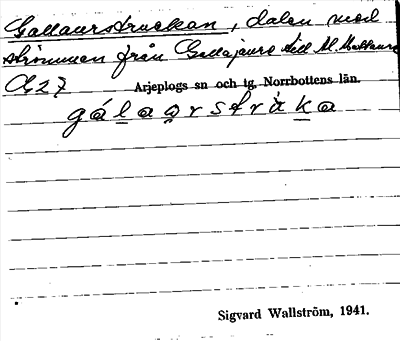 Gallaurstruckan, dalen med
strömmen från Gallajaure till M. Mattaure
C27 Arjeplogs sn och tg, Norrbottens län.
gálaarsfráka
Sigvard Wallström, 1941.